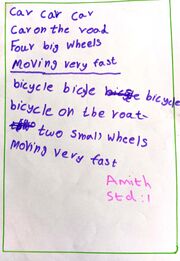 Car car car
Car on the road
Four big wheels
Moving very fast
bicycle bicycle bicycle
bicycle on the roat
two small wheels
Moving very fast
Amith
Std : 1